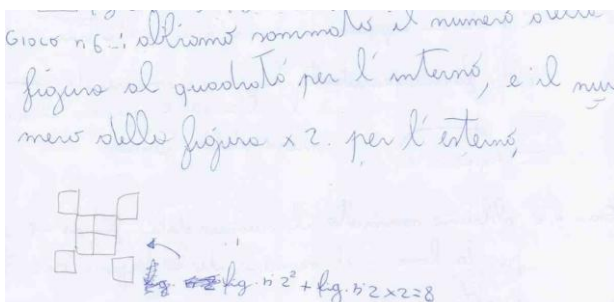 GIOCO n 6: abbiamo sommato il numero della
figura al quadrato per l'interno, e il nu
mero della figura x 2. per l'esterno,
fig. n 2² + fig. n 2 x 2 = 8